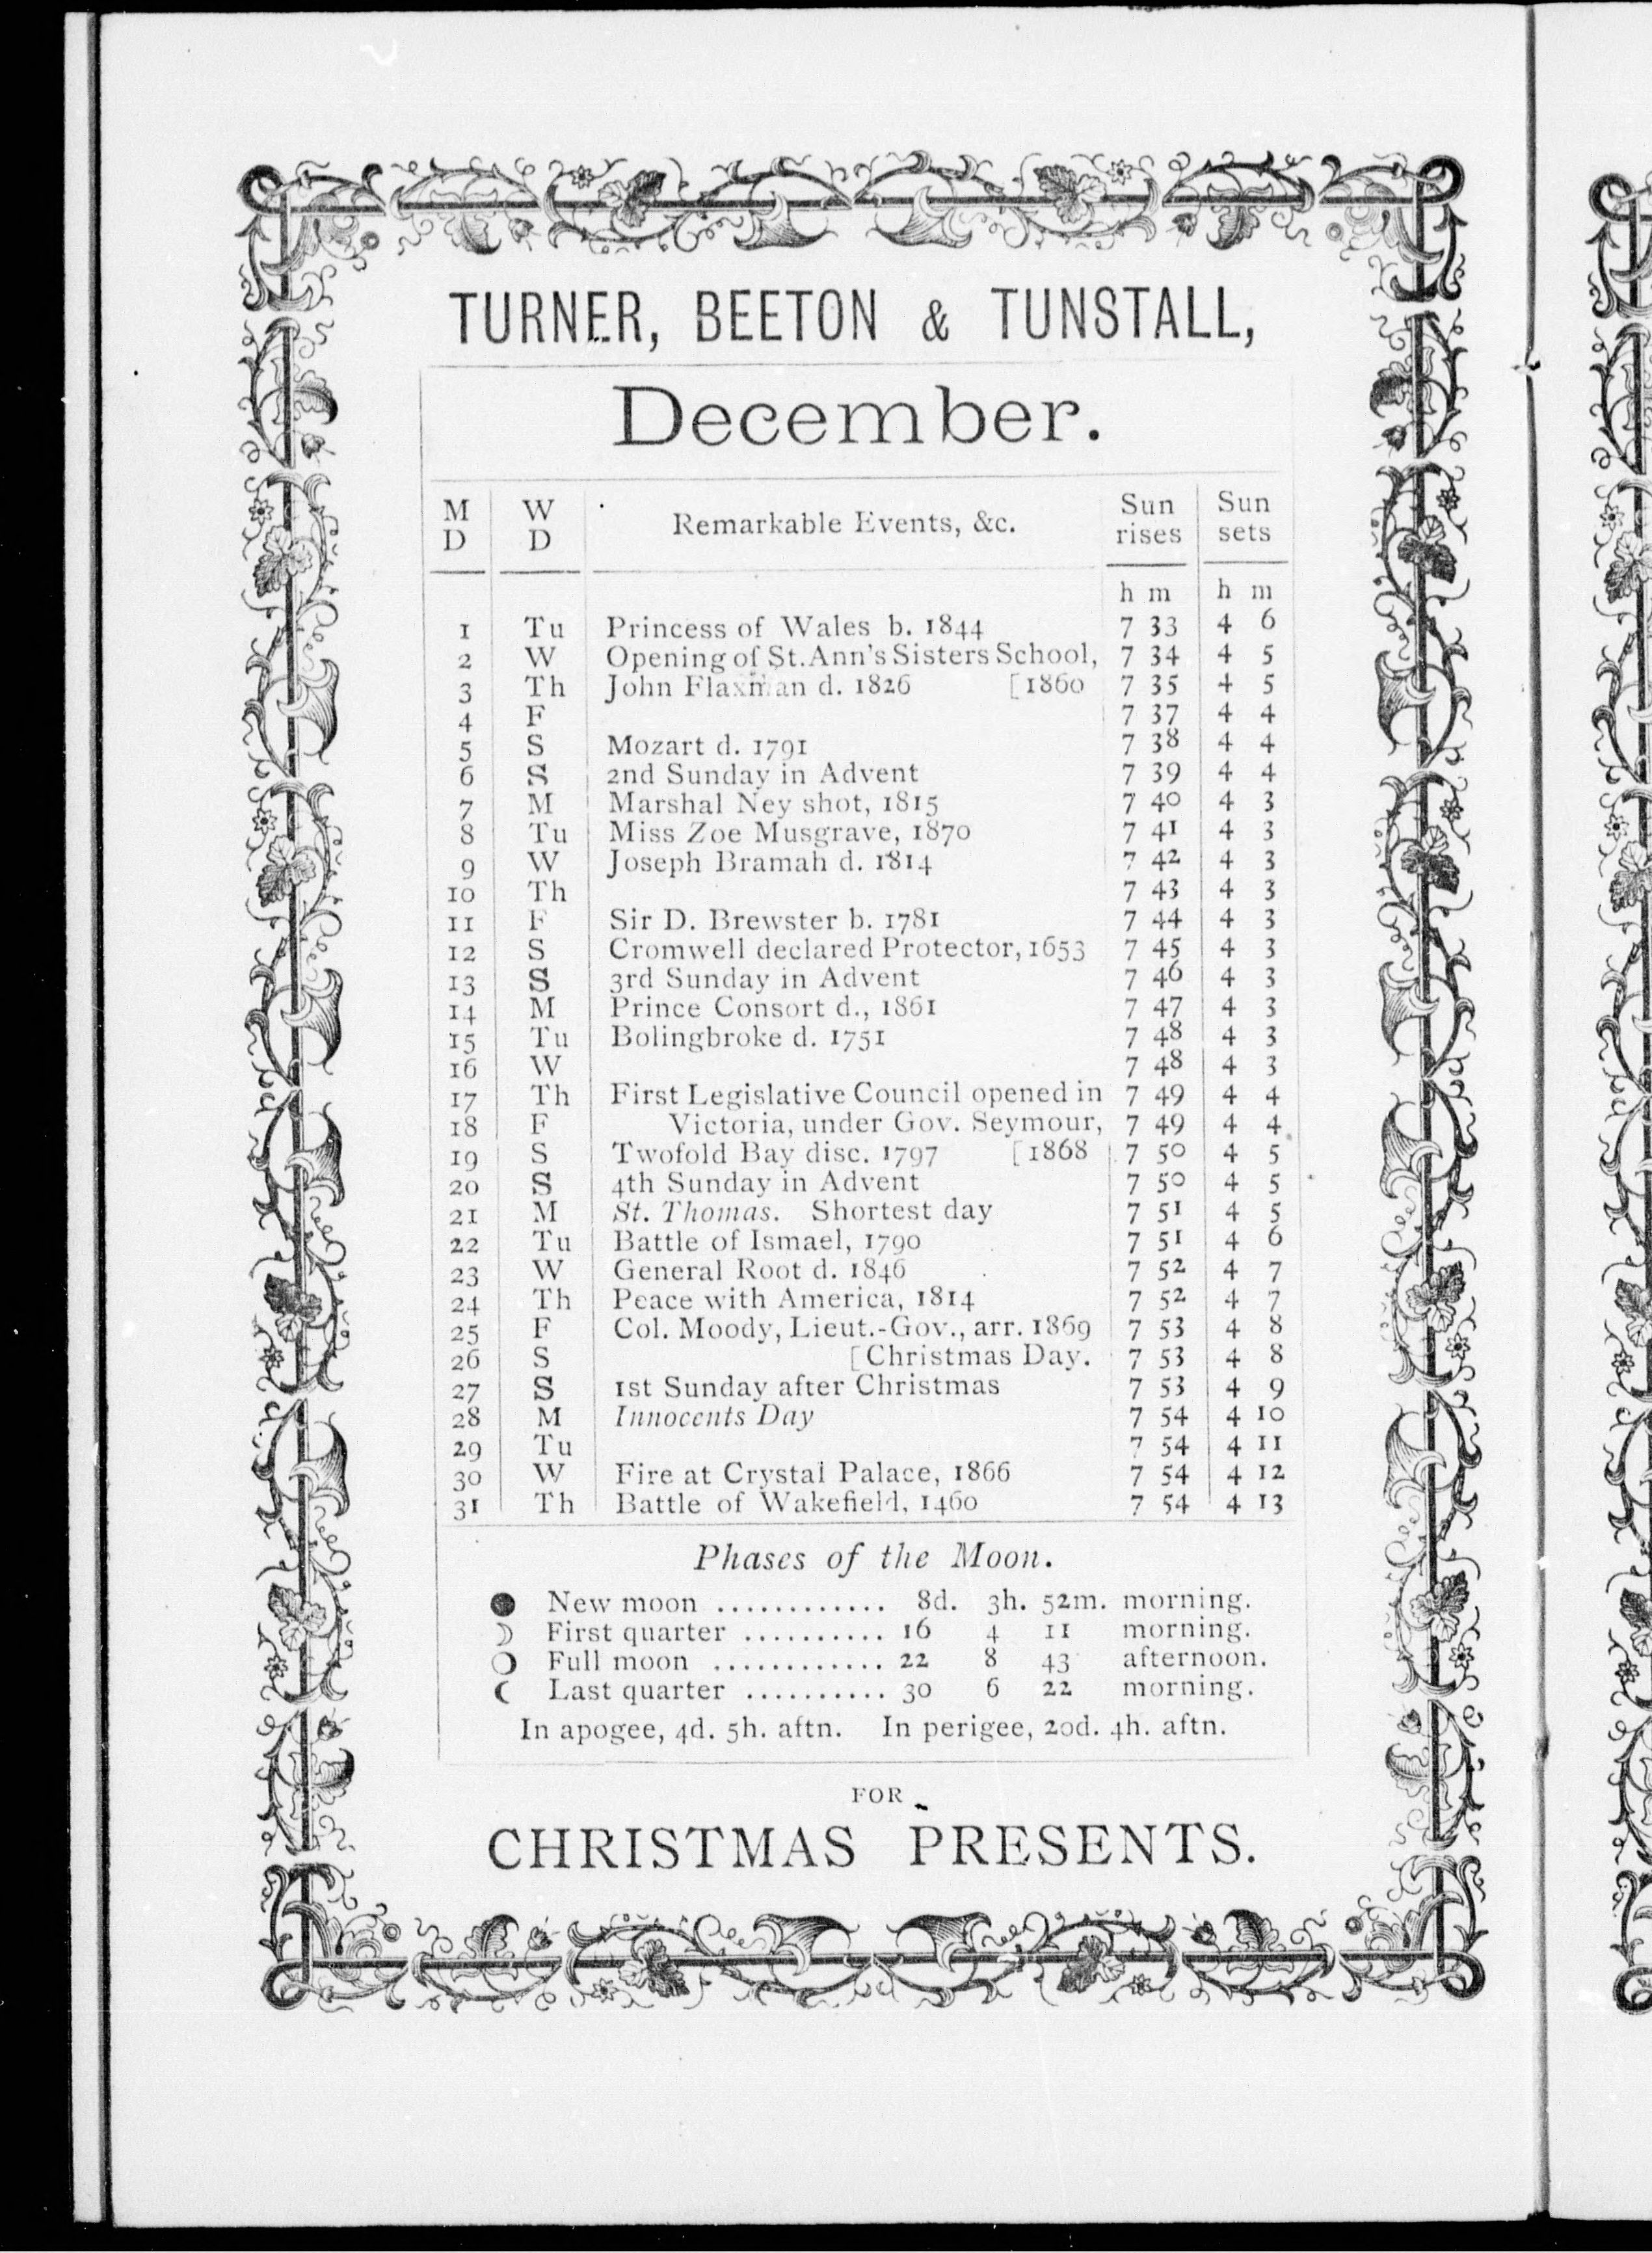 TURNER, BEETON & TUNSTALL,
December.
M D W D Remarkable Events, &c. Sun rises Sun sets
h m h m
1 Tu Princess of Wales b. 1844 7 33 4 6
2 W Opening of St. Ann's Sisters School, 7 34 4 5
3 Th John Flaxman d. 1826 [1860 7 35 4 5
4 F 7 37 4 4
5 S Mozart d. 1791 7 38 4 4
6 S 2nd Sunday in Advent 7 39 4 4
7 M Marshal Ney shot, 1815 7 40 4 3
8 Tu Miss Zoe Musgrave, 1870 7 41 4 3
9 W Joseph Bramah d. 1814 7 42 4 3
10 Th 7 43 4 3
11 F Sir D. Brewster b. 1781 7 44 4 3
12 S Cromwell declared Protector, 1653 7 45 4 3
13 S 3rd Sunday in Advent 7 46 4 3
14 M Prince Consort d., 1861 7 47 4 3
15 Tu Bolingbroke d. 1751 7 48 4 3
16 W 7 48 4 3
17 Th First Legislative Council opened in 7 49 4 4
18 F Victoria, under Gov. Seymour, 7 49 4 4
19 S Twofold Bay disc. 1797 [1868 7 50 4 5
20 S 4th Sunday in Advent 7 50 4 5
21 M St. Thomas. Shortest day 7 51 4 5
22 Tu Battle of Ismael, 1790 7 51 4 6
23 W General Root d. 1846 7 52 4 7
24 Th Peace with America, 1814 7 52 4 7
25 F Col. Moody, Lieut.-Gov., arr. 1869 7 53 4 8
26 S [Christmas Day. 7 53 4 8
27 S 1st Sunday after Christmas 7 53 4 9
28 M Innocents Day 7 54 4 10
29 Tu 7 54 4 11
30 W Fire at Crystal Palace, 1866 7 54 4 12
31 Th Battle of Wakefield, 1460 7 54 4 13
Phases of the Moon.
New moon ............ 8d. 3h. 52m. morning.
First quarter .......... 16 4 11 morning.
Full moon ............ 22 8 43 afternoon.
Last quarter .......... 30 6 22 morning.
In apogee, 4d. 5h. aftn. In perigee, 20d. 4h. aftn.
FOR
CHRISTMAS PRESENTS.